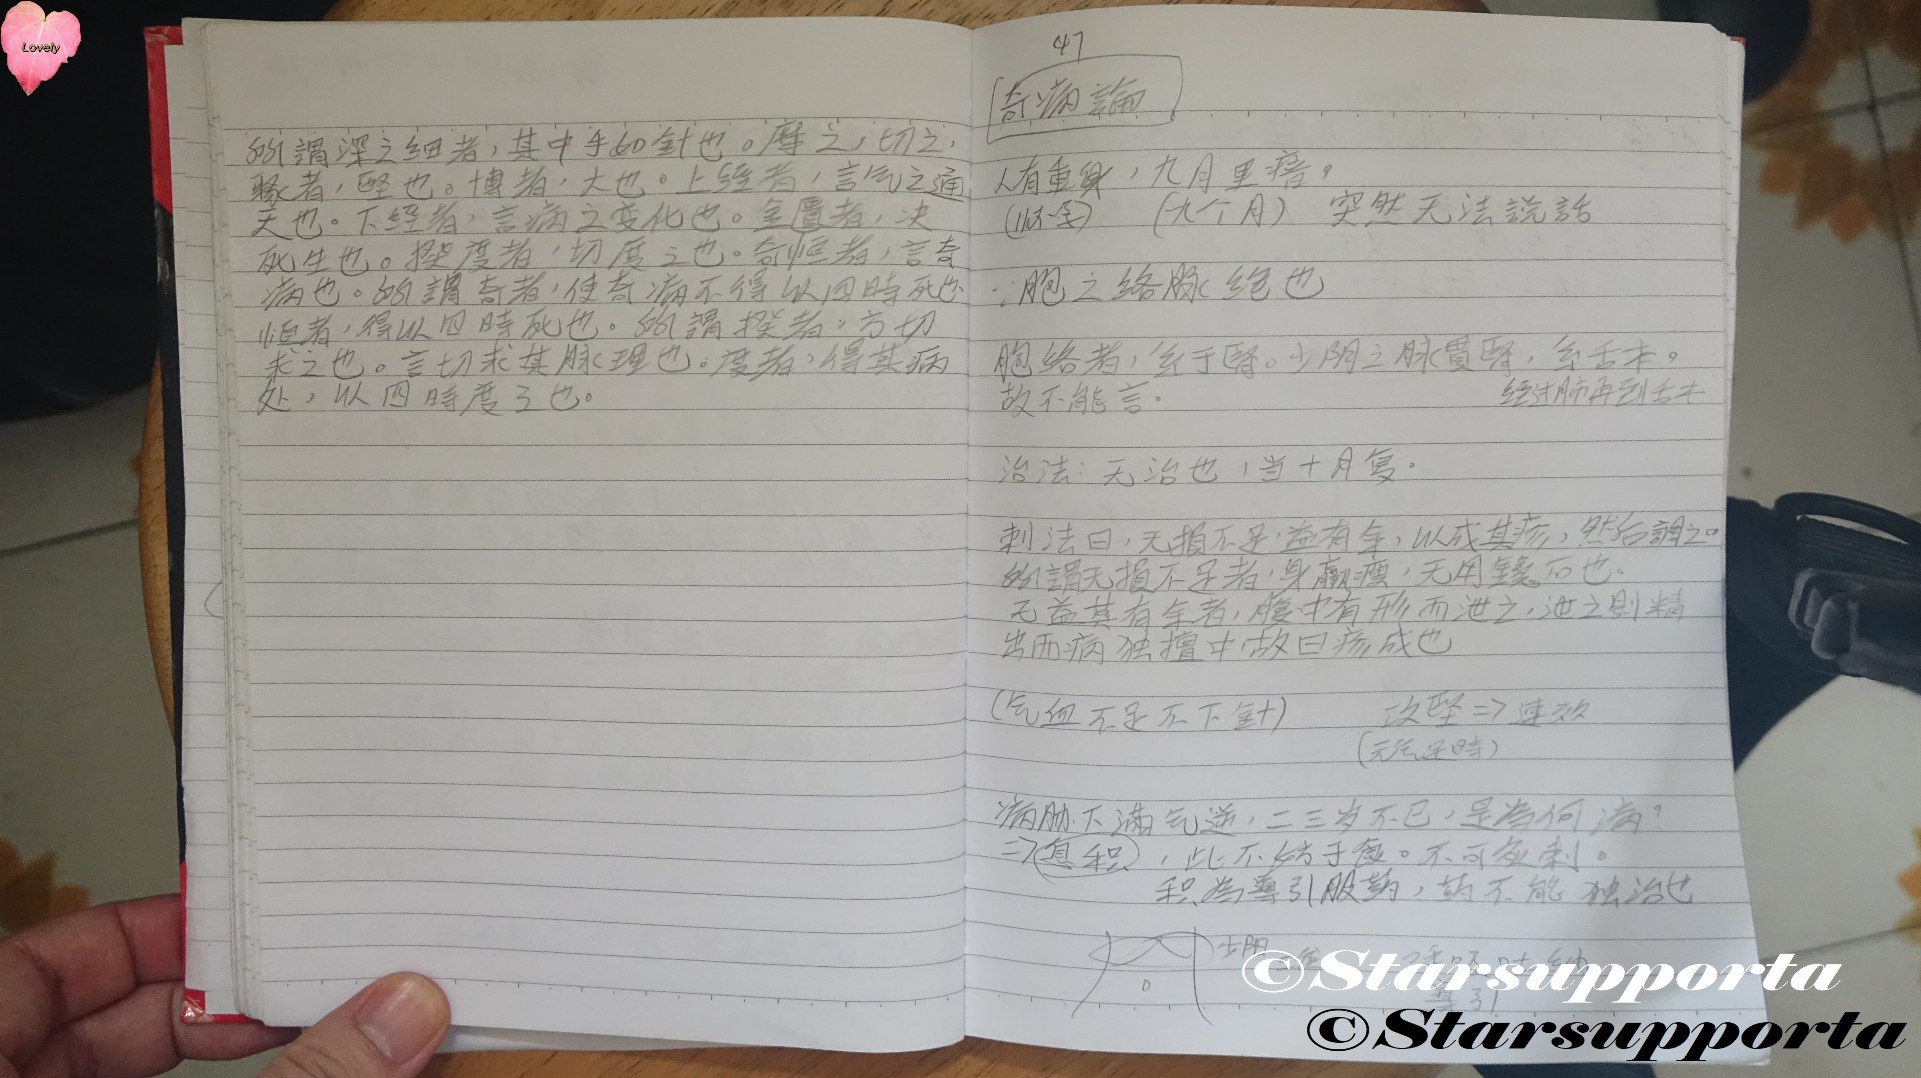 Lovely
所謂深之細者，其中手如針也。摩之，切之，
聚者，堅也。博者，大也。上經者，言气之通
天也。下經者，言病之变化也。金匱者，决
死生也。揆度者，切度之也。奇恒者，言奇
病也。所謂奇者，使奇病不得以四時死也
恒者，得以四時死也。所謂揆者，方切
求之也。言切求其脉理也。度者，得其病
处，以四時度之也。
47
奇病論
人有重身，九月里瘖。
(怀孕) (九个月) 突然无法說話
∵胞之絡脉绝也
胞络者，系于腎。少阴之脉貫腎，系舌本。
故不能言. 经过肺再到舌本
治法：无治也，当十月复.
刺法曰，无損不足，益有余，以成其疹，然后調之。
所謂无損不足者，身羸瘦，无用鑱石也.
无益其有余者，腹中有形而泄之，泄之則精
出而病独擅中 故曰疹成也
(气血不足不下針) 攻堅=>速效
(元气足時)
病胁下满气逆，二三岁不已，是為何病?
=>息积，此不妨于食。不可灸刺。
积為導引服葯，葯不能独治也
少阴
導引
©Starsupporta
©Starsupporta